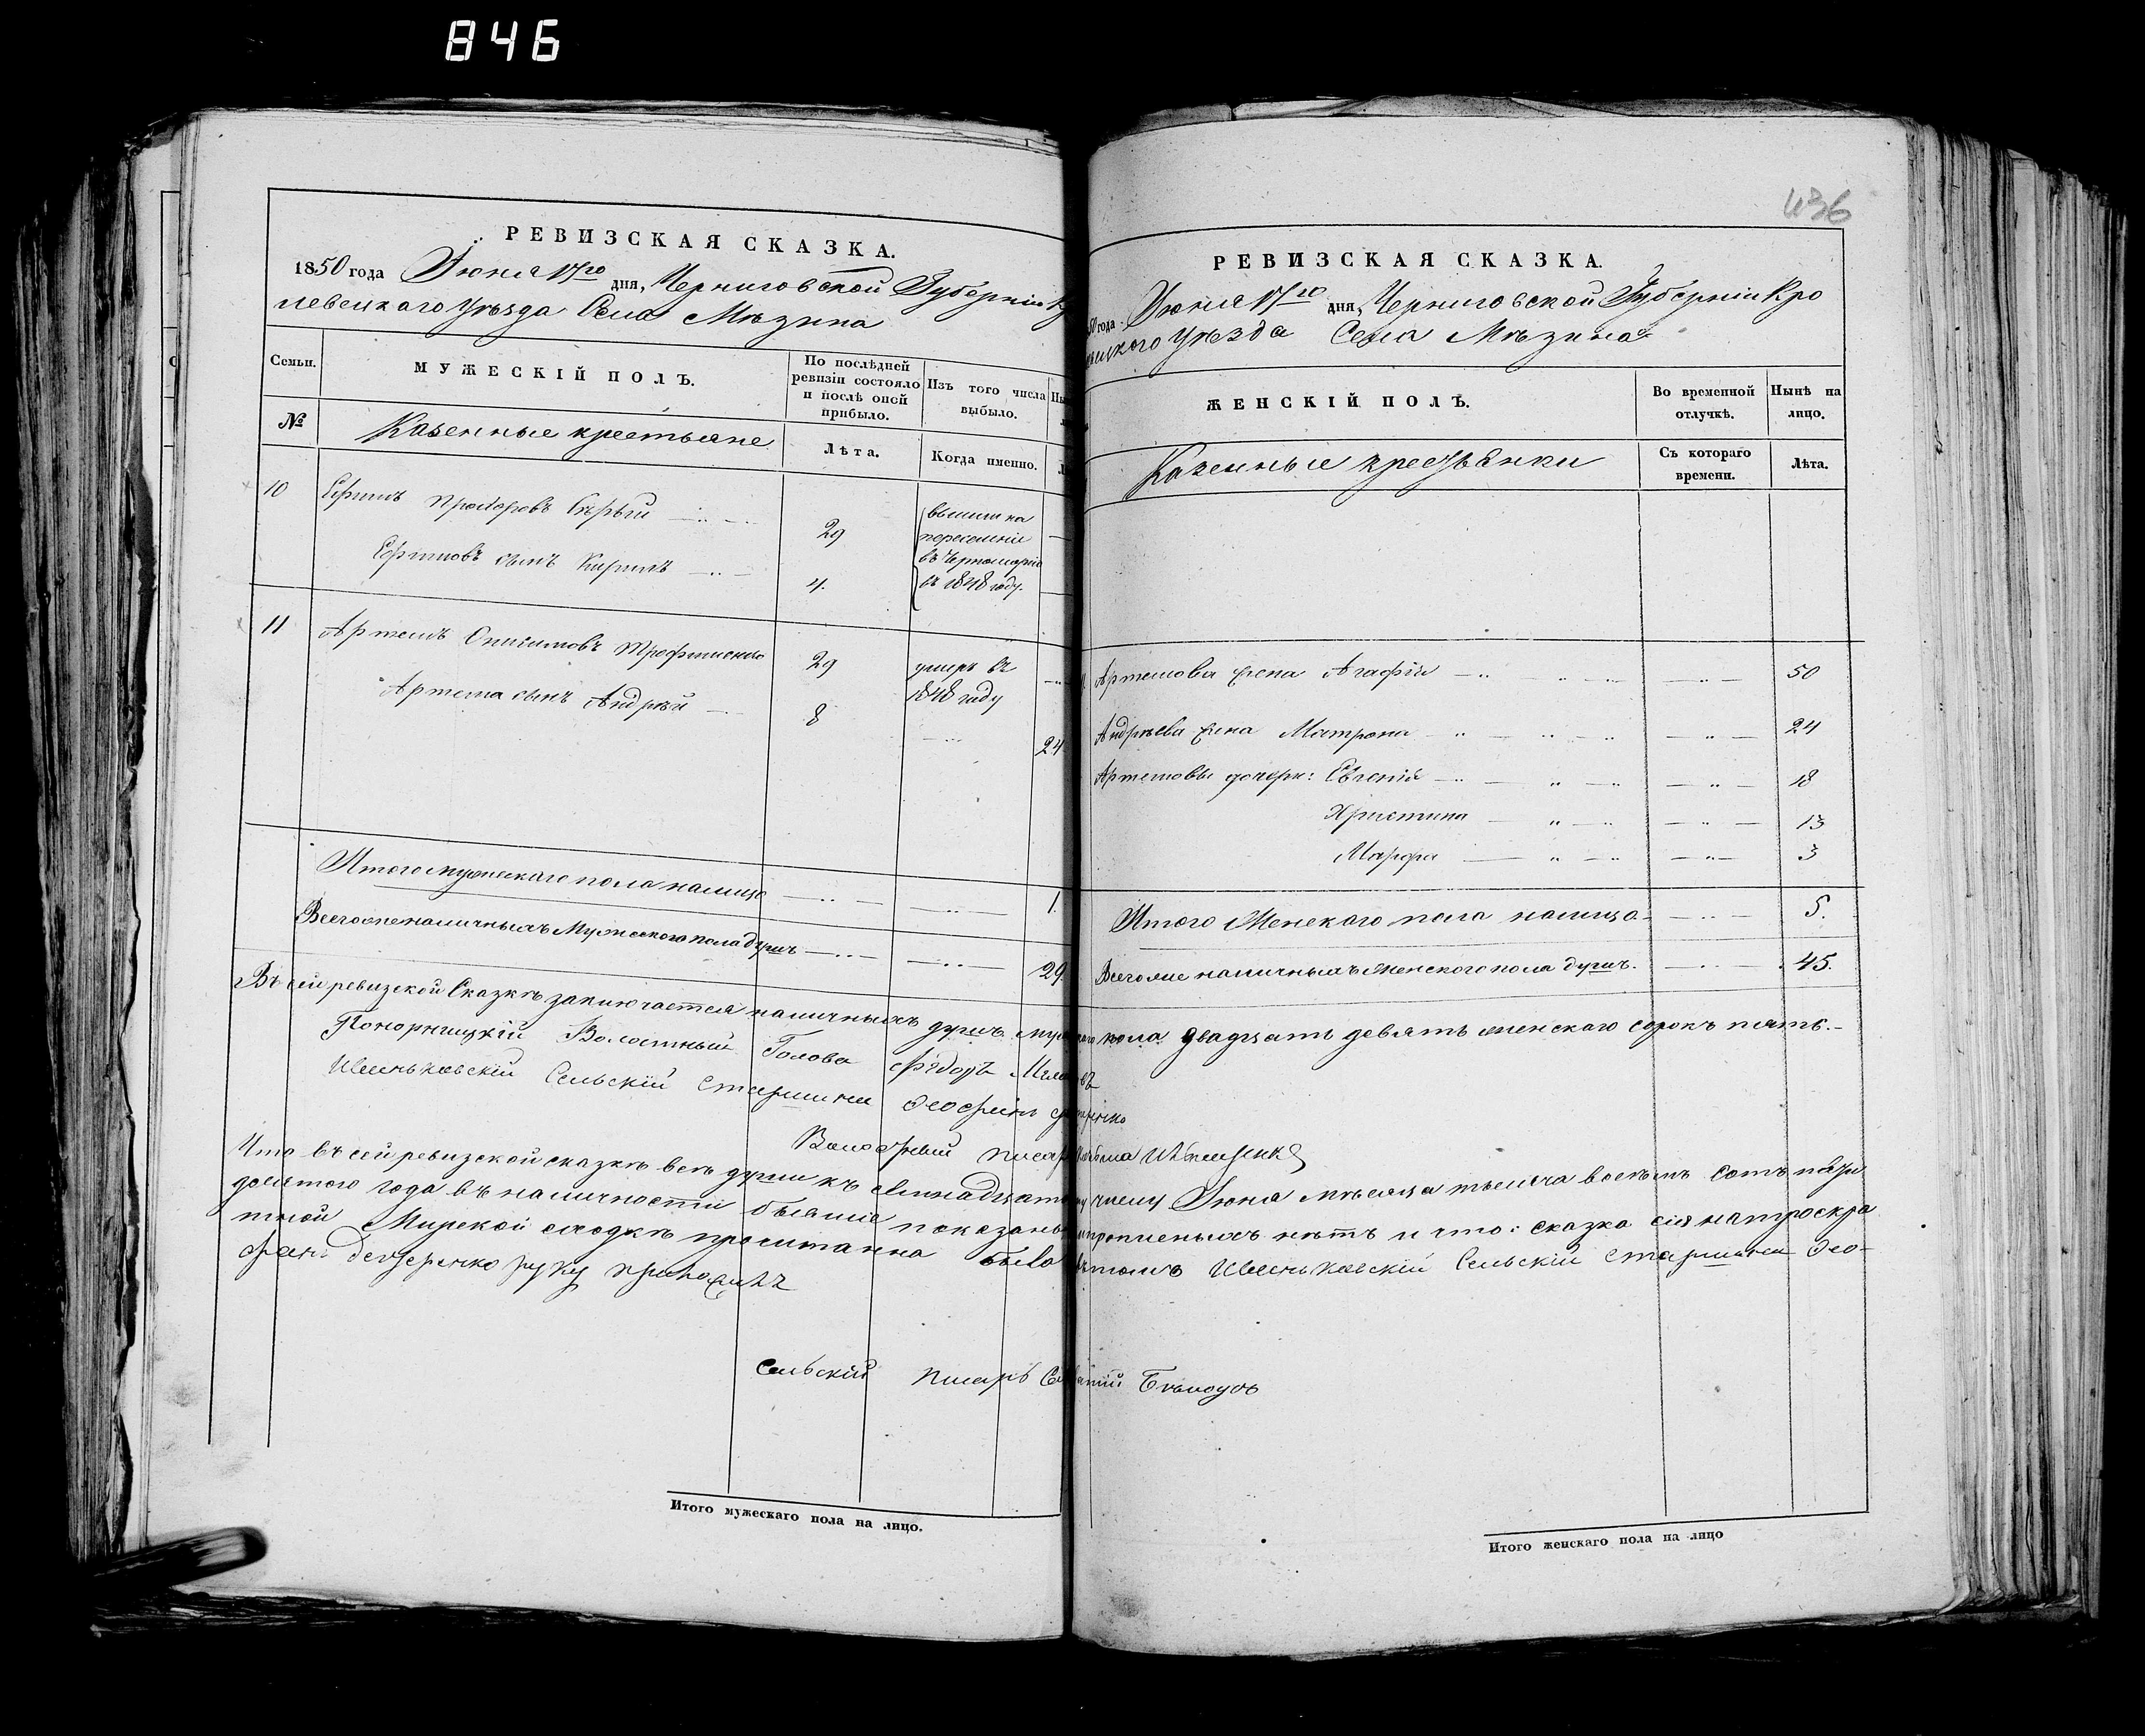 846
РЕВИЗСКАЯ СКАЗКА.
1850 года Июня 17го дня, Черниговской Губерніи К
левецкого Уѣзда Села Мѣзина
Семьи.
МУЖЕСКІЙ ПОЛЪ.
По послѣдней ревизіи состояло и послѣ оной прибыло.
Изъ того числа выбыло.
№
Казенные крестьяне
Лѣта.
Когда именно.
10
Ефимъ Прохоровъ
29
вышли на
переселеніе
Ефимовъ сынъ Кирилъ
4.
въ Черноморію
въ 1848 году.
11
Артемъ Онисимовъ Трофименко
29
умеръ въ
1848 году
Артема сынъ Андрѣй
8
24
Итого мужескаго пола налицо
1.
Всего же наличныхъ Мужескаго пола душъ
29
436
РЕВИЗСКАЯ СКАЗКА.
года Июня 17го дня, Черниговской Губерніи Кро
Уѣзда Села Мѣзина
ЖЕНСКІЙ ПОЛЪ.
Во временной отлучкѣ.
Нынѣ на лицо.
Казенные крестьянки
Съ котораго времени.
Лѣта.
Артемова жена Агафія
50
Андрѣева жена Матрона
24
Артемовы дочери: Евгенія
18
Христина
13
Марфа
3
Итого Женскаго пола налицо
5.
Всего же наличныхъ женского пола душъ.
45.
Въ сей ревизской Сказкѣ заключается наличныхъ душъ пола двадцать девять женскаго сорокъ пять.
Понорницкій Волостный Голова Фёдоръ
Сельскій Старшина
Волостный писарь
Что въ сей ревизской сказкѣ всѣ души къ числу Июня мѣсяца тысяча восемь сотъ пяти
десятого года въ наличности бывшіе показаны нѣтъ и что: сказка сія
Мирской сходкѣ прочитанна было Сельскій Старшина Ѳео-
руку приложилъ
Сельскій писарь Бѣлоусъ
Итого мужескаго пола на лицо.
Итого женскаго пола на лицо